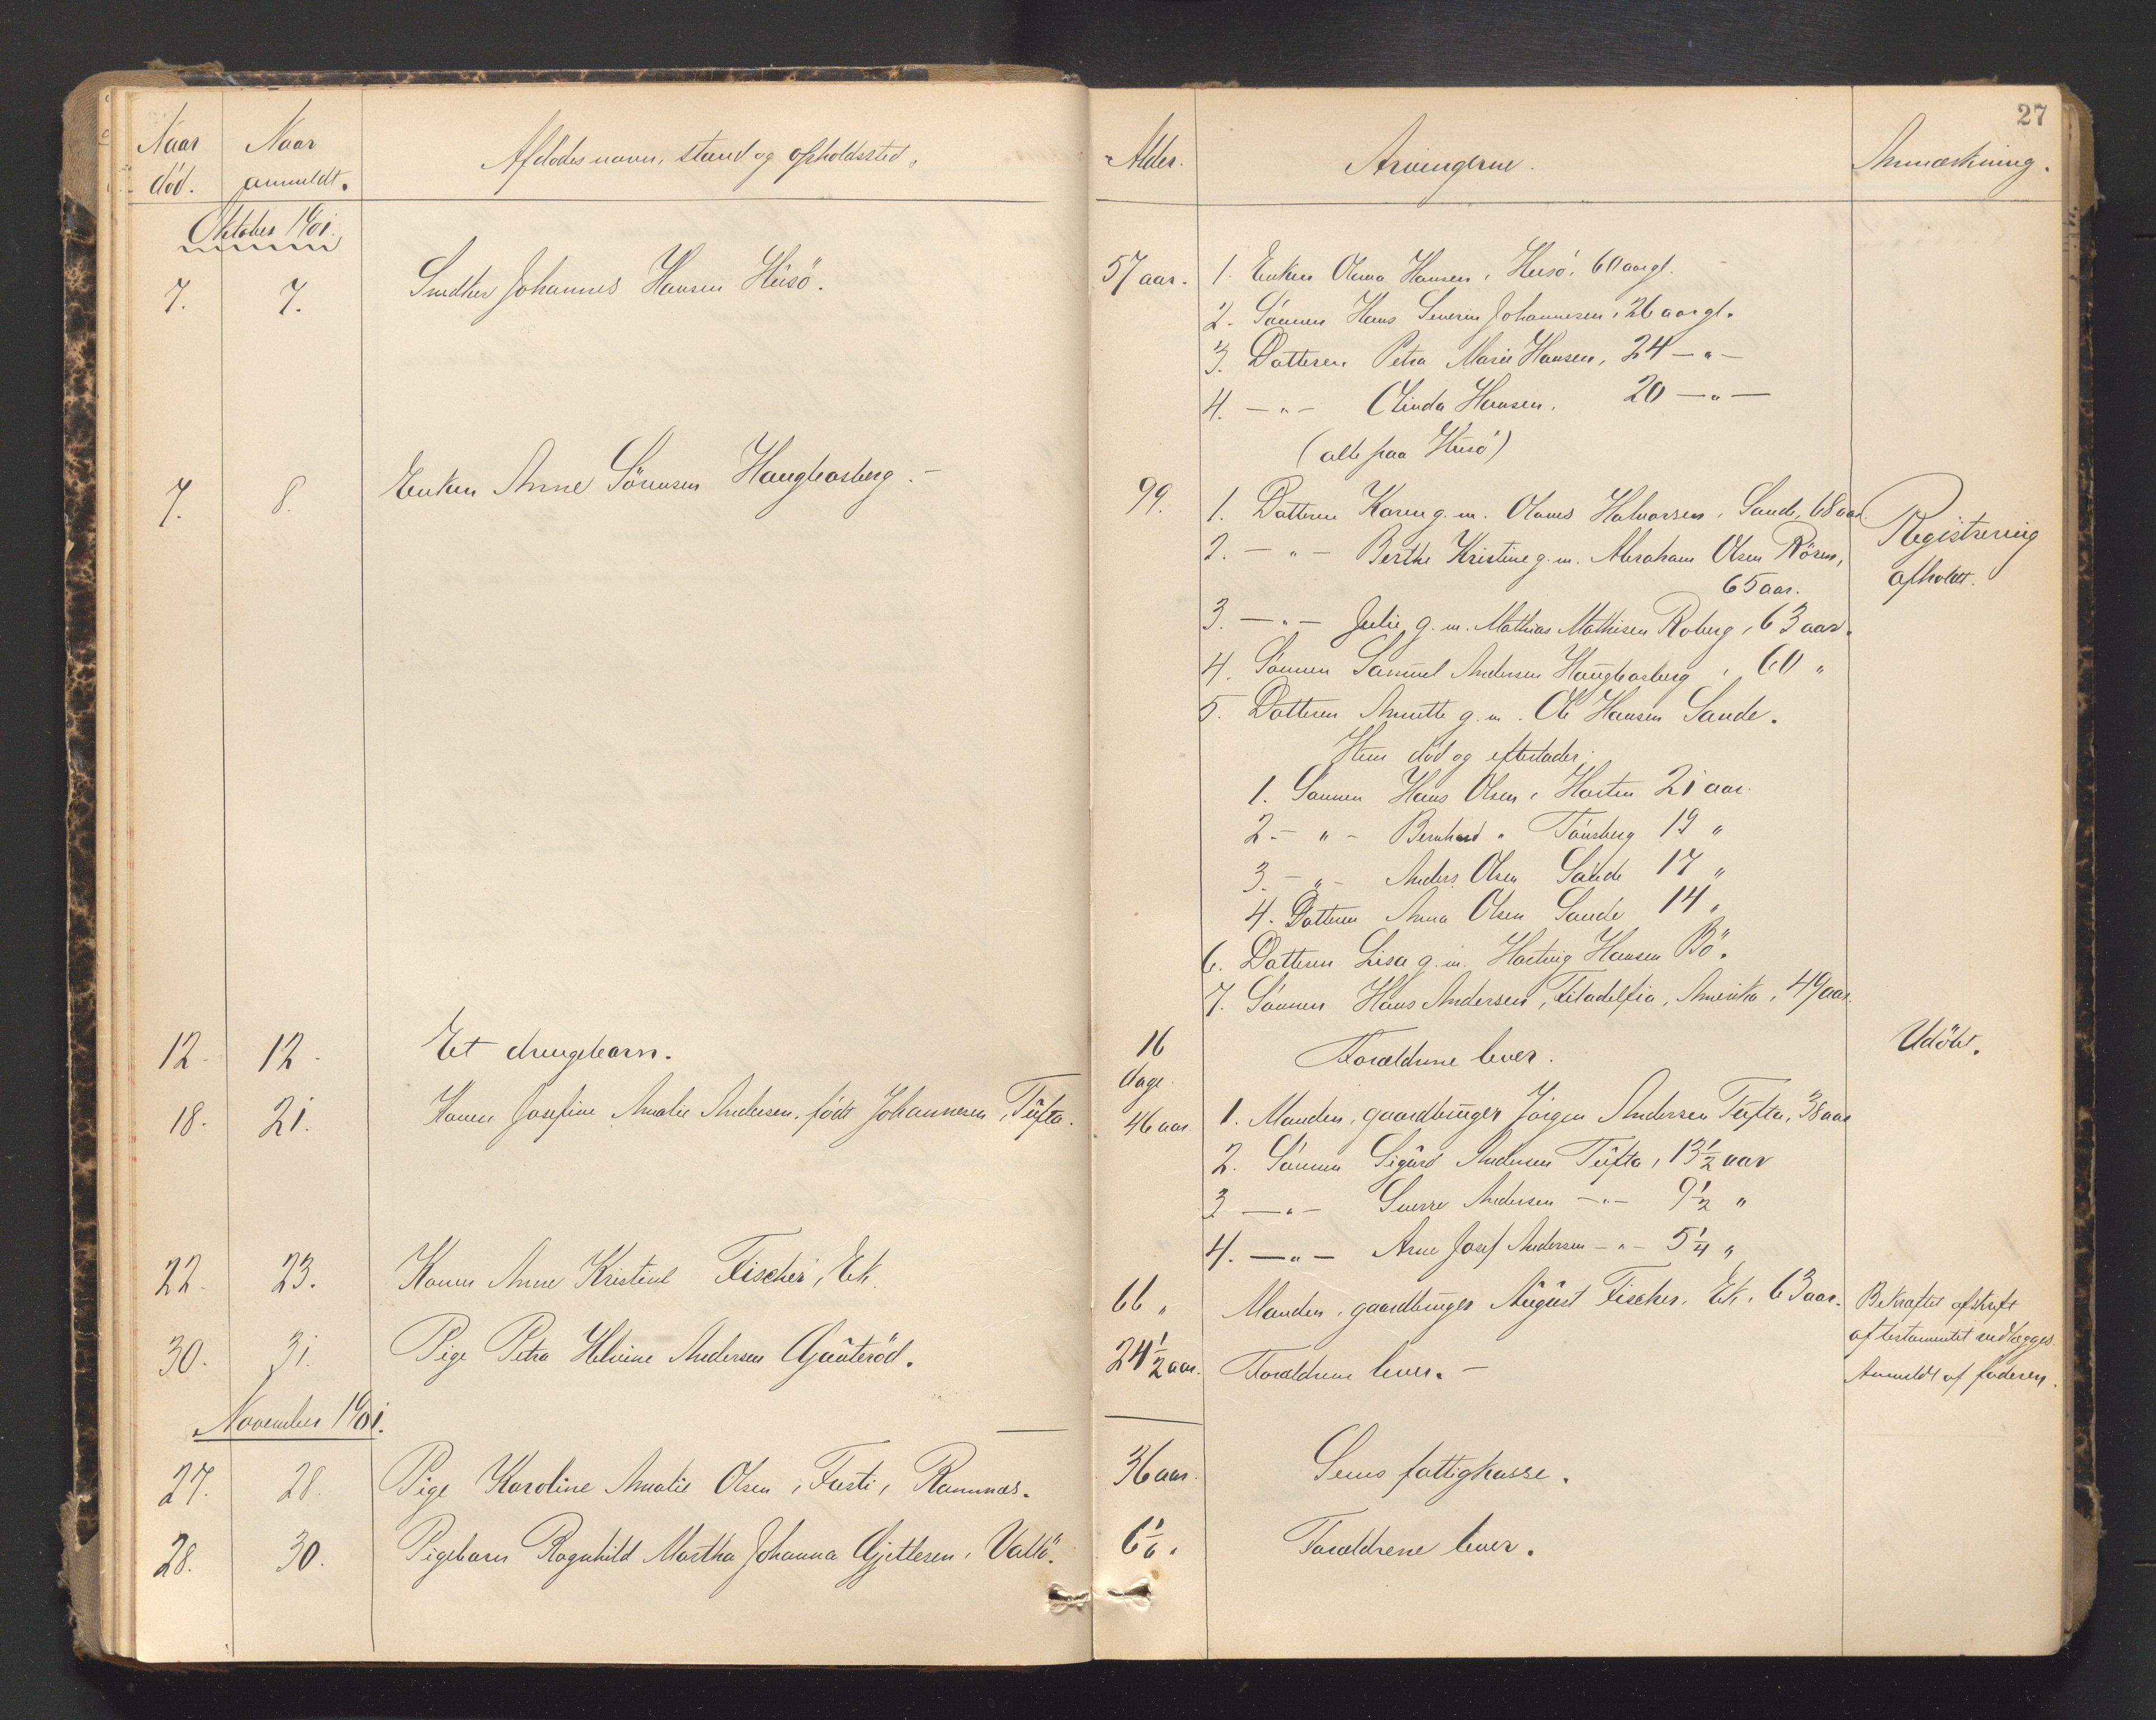 27
Naar død. Naar anmeldt. Afdødes navn, stand og opholdssted. Alder. Arvingerne. Anmærkning.
Oktober 1901.
7. 7. Johannes Hansen Husö. 57 aar. 1. Enken Hansen, Husö, 60 aar gl.
2. Sönnen Hans Severin Johannesen, 26 aar gl.
3. Datteren Petra Marie Hansen, 24 — " —
4. — " — Olinda Hansen, 20 — " —
(alle paa Husö)
7. 8. Enken Anne Sörensen Haugbasberg. — 99. 1. Datteren Karen g. m. Olaves Halvorsen, Sande, 68 aar.
2. — " — Berthe Kristine g. m. Abraham Olsen Rösen,
65 aar.
Registrering
afholdt.
3. — " — Julie g. m. Mathias Mathisen Roberg, 63 aar.
4. Sönnen Samuel Andersen Haugbasberg, 60 "
5. Datteren Annette g. m. Ole Hansen Sande.
Hun död og efterlader:
1. Sönnen Hans Olsen, Horten 21 aar.
2. — " — Bernhard " Tönsberg 19 "
3. — " — Anders Olsen Sande 17 "
4. Datteren Anna Olsen Sande 14 "
6. Datteren Lisa g. m. Hartvig Hansen Bö.
7. Sönnen Hans Andersen, Filadelfia, Amerika, 49 aar.
12. 12. Et drengebarn. 16 dage. Forældrene lever. Udöbt.
18. 21. Konen Josefine Amalie Andersen, født Johannesen, Tufta. 46 aar. 1. Manden, gaardbruger Jörgen Andersen Tufta, 38 aar
2. Sönnen Sigurd Andersen Tufta, 13 1/2 aar
3 — " — Sverre Andersen — " — 9 1/2 "
4. — " — Arne Josef Andersen — " — 5 1/4 "
22. 23. Konen Anne Kristine Fischer, Ek. 66 " Manden, gaardbruger August Fischer, Ek, 63 aar. Bekræftet afskrift
af testamentet vedlægges.
30. 31. Pige Petra Helvine Andersen Gjauteröd. 24 1/2 aar. Forældrene lever. — Anmeldt af faderen.
November 1901.
27. 28. Pige Karoline Amalie Olsen, Fæsti, Ramnæs. 36 aar. Sems fattigkasse.
28. 30. Pigebarn Ragnhild Martha Johanna Gjettesen, Vallö. 6 1/6 " Forældrene lever.